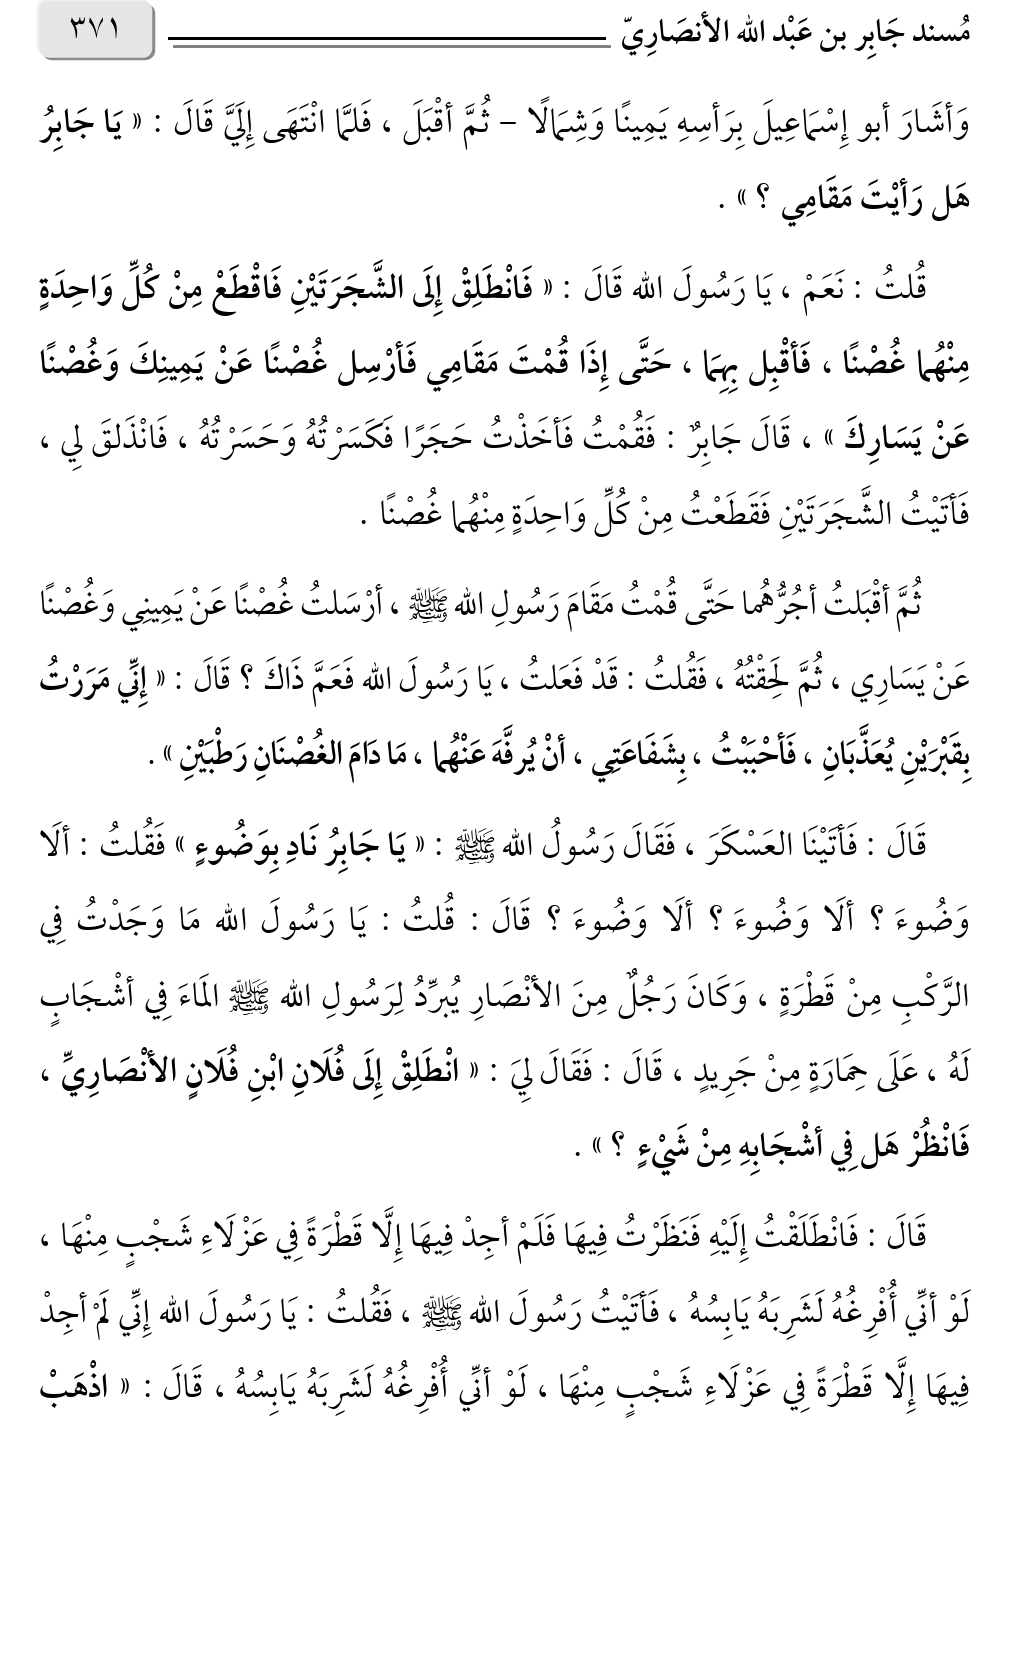 مُسند جَابِر بن عَبْد الله الأنصَارِيّ ٣٧١
وَأشَارَ أبو إِسْمَاعِيلَ بِرَأسِهِ يَمِينًا وَشِمَالًا – ثُمَّ أقْبَلَ ، فَلمَّا انْتَهَى إِلَيَّ قَالَ : « يَا جَابِرُ
هَل رَأيْتَ مَقَامِي ؟ » .
قُلتُ : نَعَمْ ، يَا رَسُولَ الله قَالَ : « فَانْطَلِقْ إِلَى الشَّجَرَتَيْنِ فَاقْطَعْ مِنْ كُلِّ وَاحِدَةٍ
مِنْهُما غُصْنًا ، فَأقْبِل بِهِمَا ، حَتَّى إِذَا قُمْتَ مَقَامِي فَأرْسِل غُصْنًا عَنْ يَمِينِكَ وَغُصْنًا
عَنْ يَسَارِكَ » ، قَالَ جَابِرٌ : فَقُمْتُ فَأخَذْتُ حَجَرًا فَكَسَرْتُهُ وَحَسَرْتُهُ ، فَانْذَلقَ لِي ،
فَأتَيْتُ الشَّجَرَتَيْنِ فَقَطَعْتُ مِنْ كُلِّ وَاحِدَةٍ مِنْهُما غُصْنًا .
ثُمَّ أقْبَلتُ أجُرُّهُما حَتَّى قُمْتُ مَقَامَ رَسُولِ الله ﷺ ، أرْسَلتُ غُصْنًا عَنْ يَمِينِي وَغُصْنًا
عَنْ يَسَارِي ، ثُمَّ لَحِقْتُهُ ، فَقُلتُ : قَدْ فَعَلتُ ، يَا رَسُولَ الله فَعَمَّ ذَاكَ ؟ قَالَ : « إِنِّي مَرَرْتُ
بِقَبْرَيْنِ يُعَذَّبَانِ ، فَأحْبَبْتُ ، بِشَفَاعَتِي ، أنْ يُرفَّهَ عَنْهُما ، مَا دَامَ الغُصْنَانِ رَطْبَيْنِ » .
قَالَ : فَأتَيْنَا العَسْكَرَ ، فَقَالَ رَسُولُ الله ﷺ : « يَا جَابِرُ نَادِ بِوَضُوءٍ » فَقُلتُ : ألَا
وَضُوءَ ؟ ألَا وَضُوءَ ؟ ألَا وَضُوءَ ؟ قَالَ : قُلتُ : يَا رَسُولَ الله مَا وَجَدْتُ فِي
الرَّكْبِ مِنْ قَطْرَةٍ ، وَكَانَ رَجُلٌ مِنَ الأنْصَارِ يُبرِّدُ لِرَسُولِ الله ﷺ المَاءَ فِي أشْجَابٍ
لَهُ ، عَلَى حِمَارَةٍ مِنْ جَرِيدٍ ، قَالَ : فَقَالَ لِيَ : « انْطَلِقْ إِلَى فُلَانِ ابْنِ فُلَانٍ الأنْصَارِيِّ ،
فَانْظُرْ هَل فِي أشْجَابِهِ مِنْ شَيْءٍ ؟ » .
قَالَ : فَانْطَلَقْتُ إِلَيْهِ فَنَظَرْتُ فِيهَا فَلَمْ أجِدْ فِيهَا إِلَّا قَطْرَةً فِي عَزْلَاءِ شَجْبٍ مِنْهَا ،
لَوْ أنِّي أُفْرِغُهُ لَشَرِبَهُ يَابِسُهُ ، فَأتَيْتُ رَسُولَ الله ﷺ ، فَقُلتُ : يَا رَسُولَ الله إِنِّي لَمْ أجِدْ
فِيهَا إِلَّا قَطْرَةً فِي عَزْلَاءِ شَجْبٍ مِنْهَا ، لَوْ أنِّي أُفْرِغُهُ لَشَرِبَهُ يَابِسُهُ ، قَالَ : « اذْهَبْ